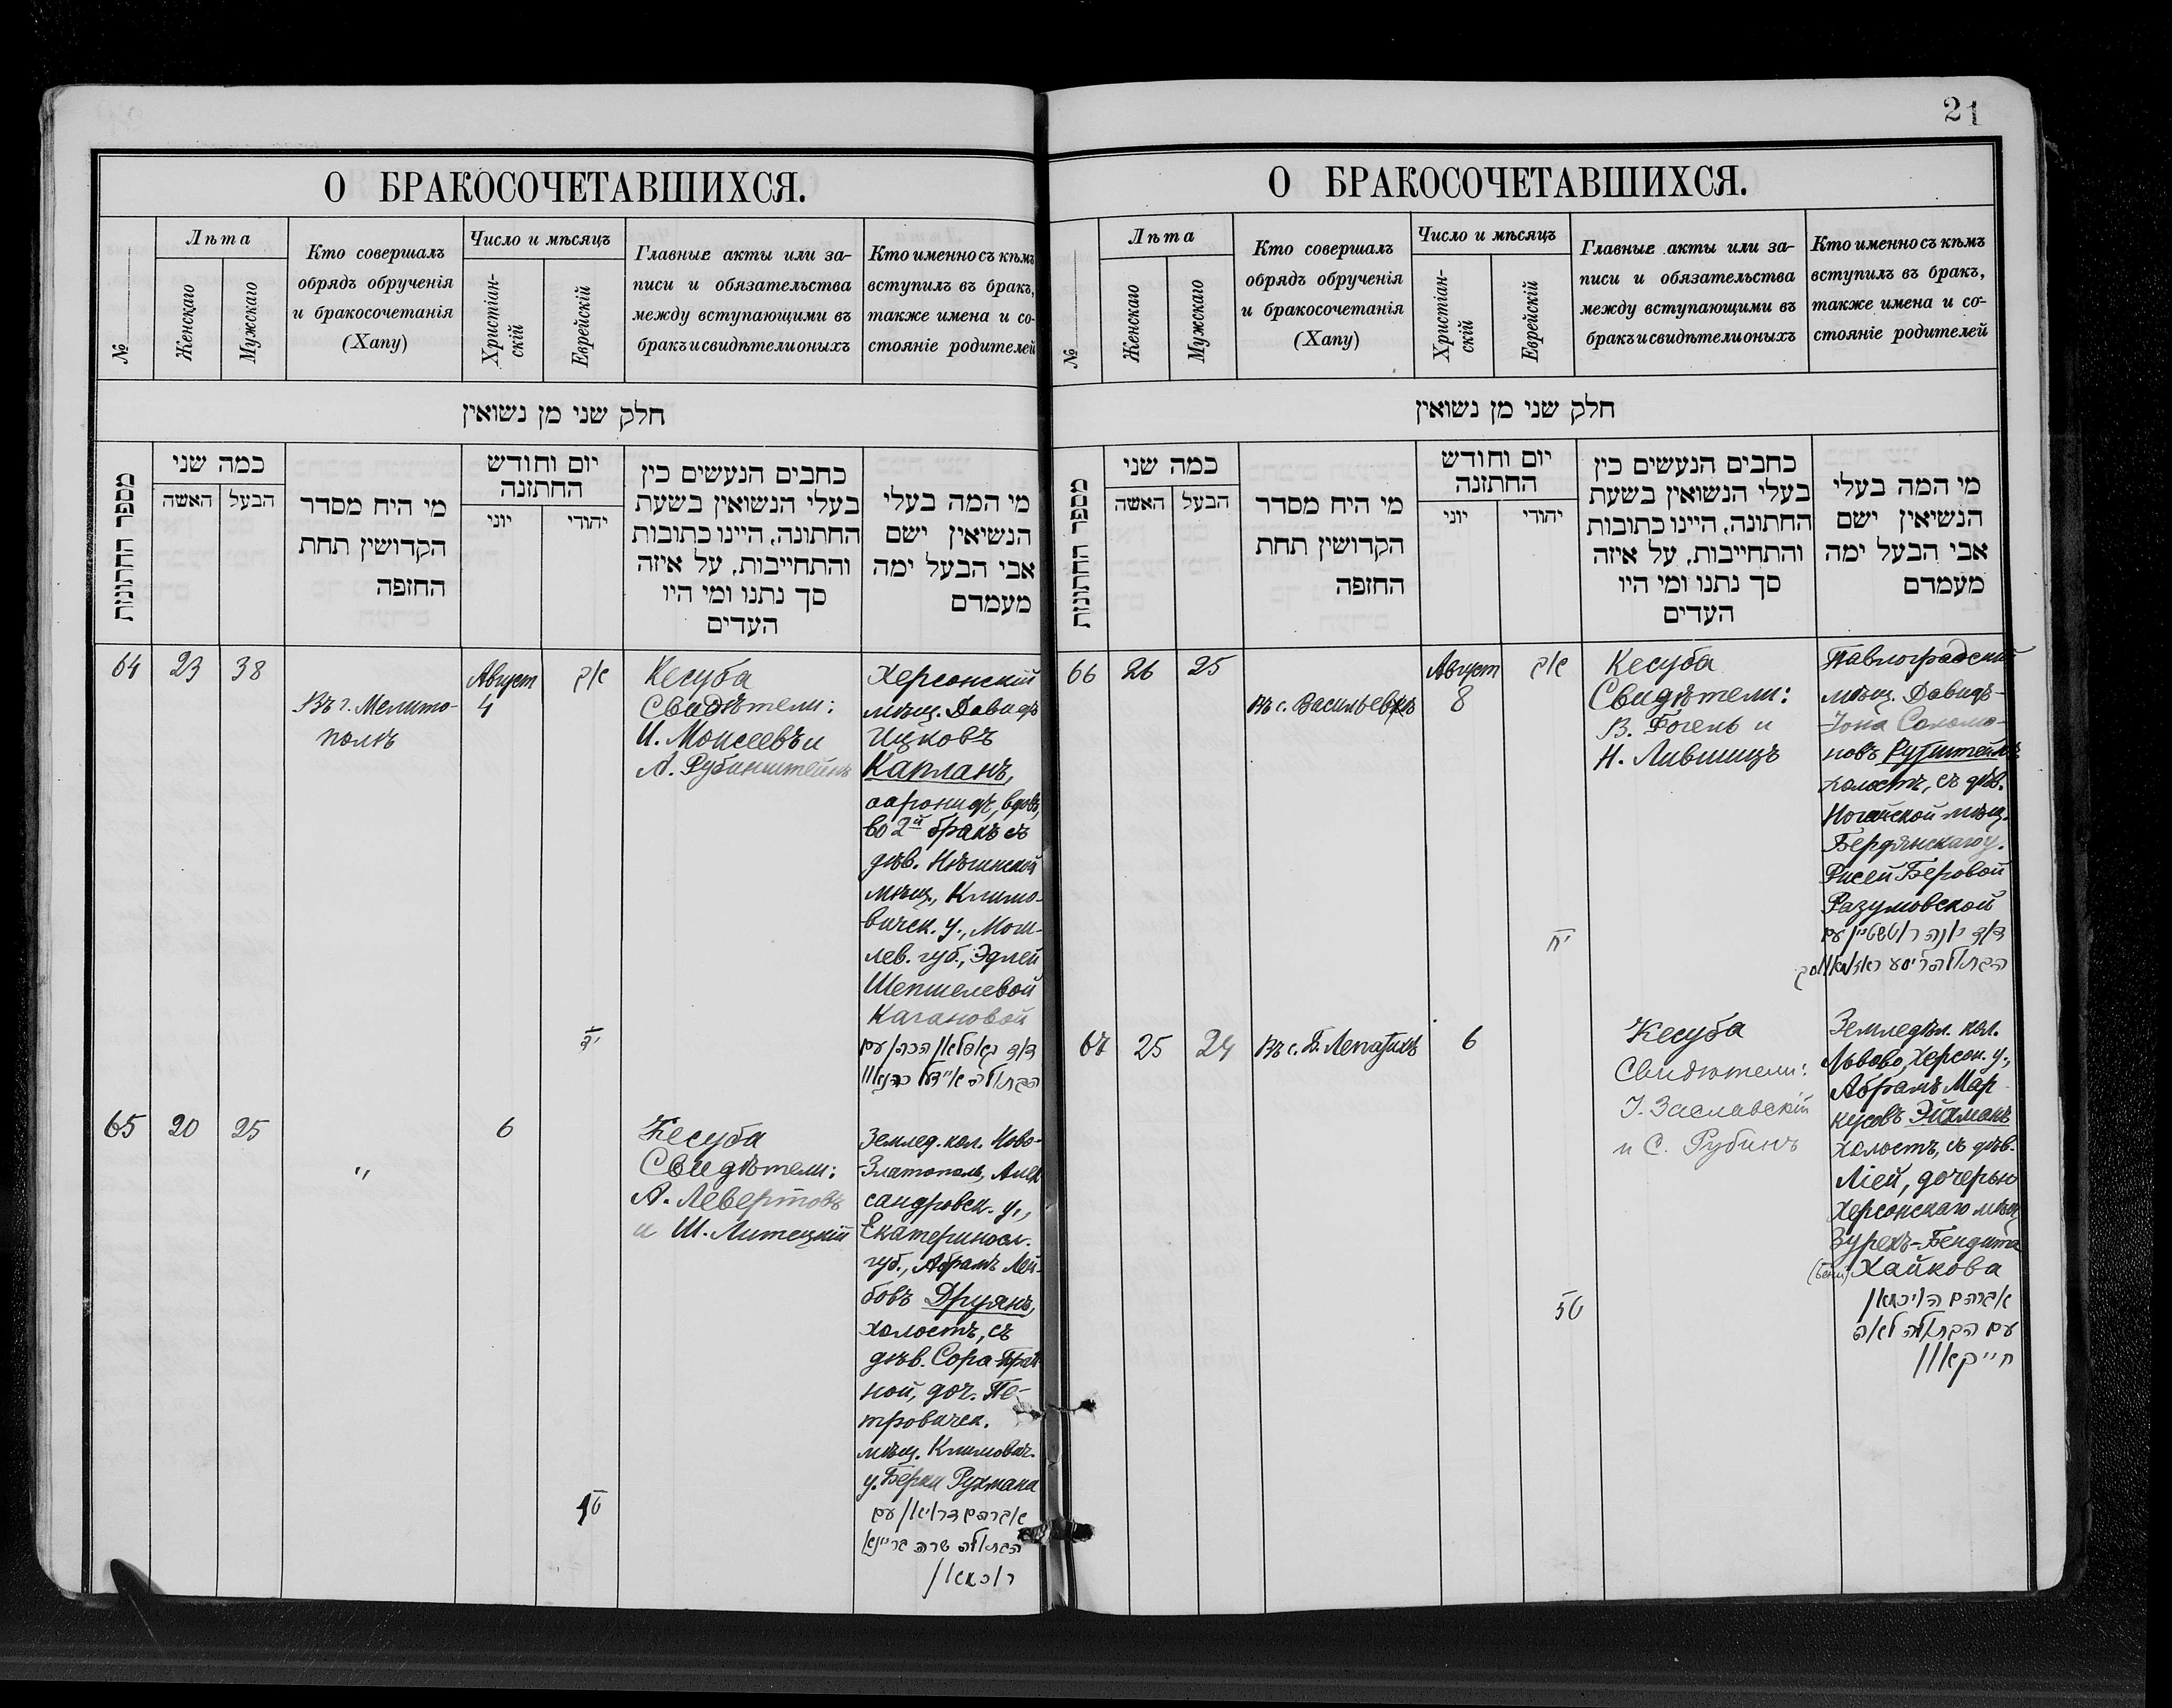 О БРАКОСОЧЕТАВШИХСЯ.
№
Лѣта
Женскаго
Мужскаго
Кто совершалъ
обрядъ обрученія
и бракосочетанія
(Хапу)
Число и мѣсяцъ
Христіан-
скій
Еврейскій
Главные акты или за-
писи и обязательства
между вступающими въ
бракъ и свидѣтели оныхъ
Кто именно съ кѣмъ
вступилъ въ бракъ,
также имена и со-
стояніе родителей
חלק שני מן נשואין
מספר החתונות
כמה שני
האשה
הבעל
מי היח מסדר
הקדושין תחת
החופה
יום וחודש
החתונה
יוני
יהודי
כחבים הנעשים כין
בעלי הנשואין בשעת
החתונה, היינו כתובות
והתחייבות, על איזה
סך נתנו ומי היו
העדים
מי המה בעלי
הנשיאין ישם
אבי הבעל ימה
מעמדם
64
23
38
Въ г. Мелито-
полѣ
Август
4
אב
יד
Кесуба
Свидѣтели:
И. Моисеевъ и
А. Рубинштейнъ
Херсонскій
мѣщ. Давидъ
Ицковъ
Капланъ,
ааронидъ, вдовъ,
во 2й бракъ съ
дѣв. Нѣжинской
мѣщ., Климо-
вичск. у., Моги-
лев. губ., Эдлей
Шепшелевой
Кагановой
דוד קאפלאן הכהן עם
65
20
25
"
6
Кесуба
Свидѣтели:
А. Левертовъ
и Ш. Литецкій
Землед. кол. Ново-
Златополь, Алек
сандровск. у.,
Екатериносл.
губ., Абрамъ Лей-
бовъ Друянъ,
холостъ, съ
дѣв. Сора-Прей
ной, доч. Пе-
тровичск.
мѣщ. Климович.
у. Берки Рухмана
אברהם דרויאן עם
הבתולה שרה פריינא
רוכמאן
21
О БРАКОСОЧЕТАВШИХСЯ.
№
Лѣта
Женскаго
Мужскаго
Кто совершалъ
обрядъ обрученія
и бракосочетанія
(Хапу)
Число и мѣсяцъ
Христіан-
скій
Еврейскій
Главные акты или за-
писи и обязательства
между вступающими въ
бракъ и свидѣтели оныхъ
Кто именно съ кѣмъ
вступилъ въ бракъ,
также имена и со-
стояніе родителей
חלק שני מן נשואין
מספר החתונות
כמה שני
האשה
הבעל
מי היח מסדר
הקדושין תחת
החופה
יום וחודש
החתונה
יוני
יהודי
כחבים הנעשים כין
בעלי הנשואין בשעת
החתונה, היינו כתובות
והתחייבות, על איזה
סך נתנו ומי היו
העדים
מי המה בעלי
הנשיאין ישם
אבי הבעל ימה
מעמדם
66
26
25
Въ с. Васильевкѣ
Август
8
אב
יח
Кесуба
Свидѣтели:
В. Фогель и
Н. Лившицъ
Павлоградский
мѣщ. Давидъ-
-Іона Соломо-
новъ
холостъ, съ дѣв.
Ногайской мѣщ.
Бердянскаго у.
Рисей Беровой
Разумовской
67
25
24
Въ с. Б. Лепатихѣ
6
טז
Кесуба
Свидѣтели:
І. Заславскій
и С. Рубинъ
Земледѣл. кол.
Львово, Херсон. у.,
Абрамъ Мар-
кусовъ Эйхманъ
холостъ, съ дѣв.
Ліей, дочерью
Херсонскаго мѣщ
Зурехъ-Бендита
Хайкова
אברהם הויכמאן
עם הבתולה לאה